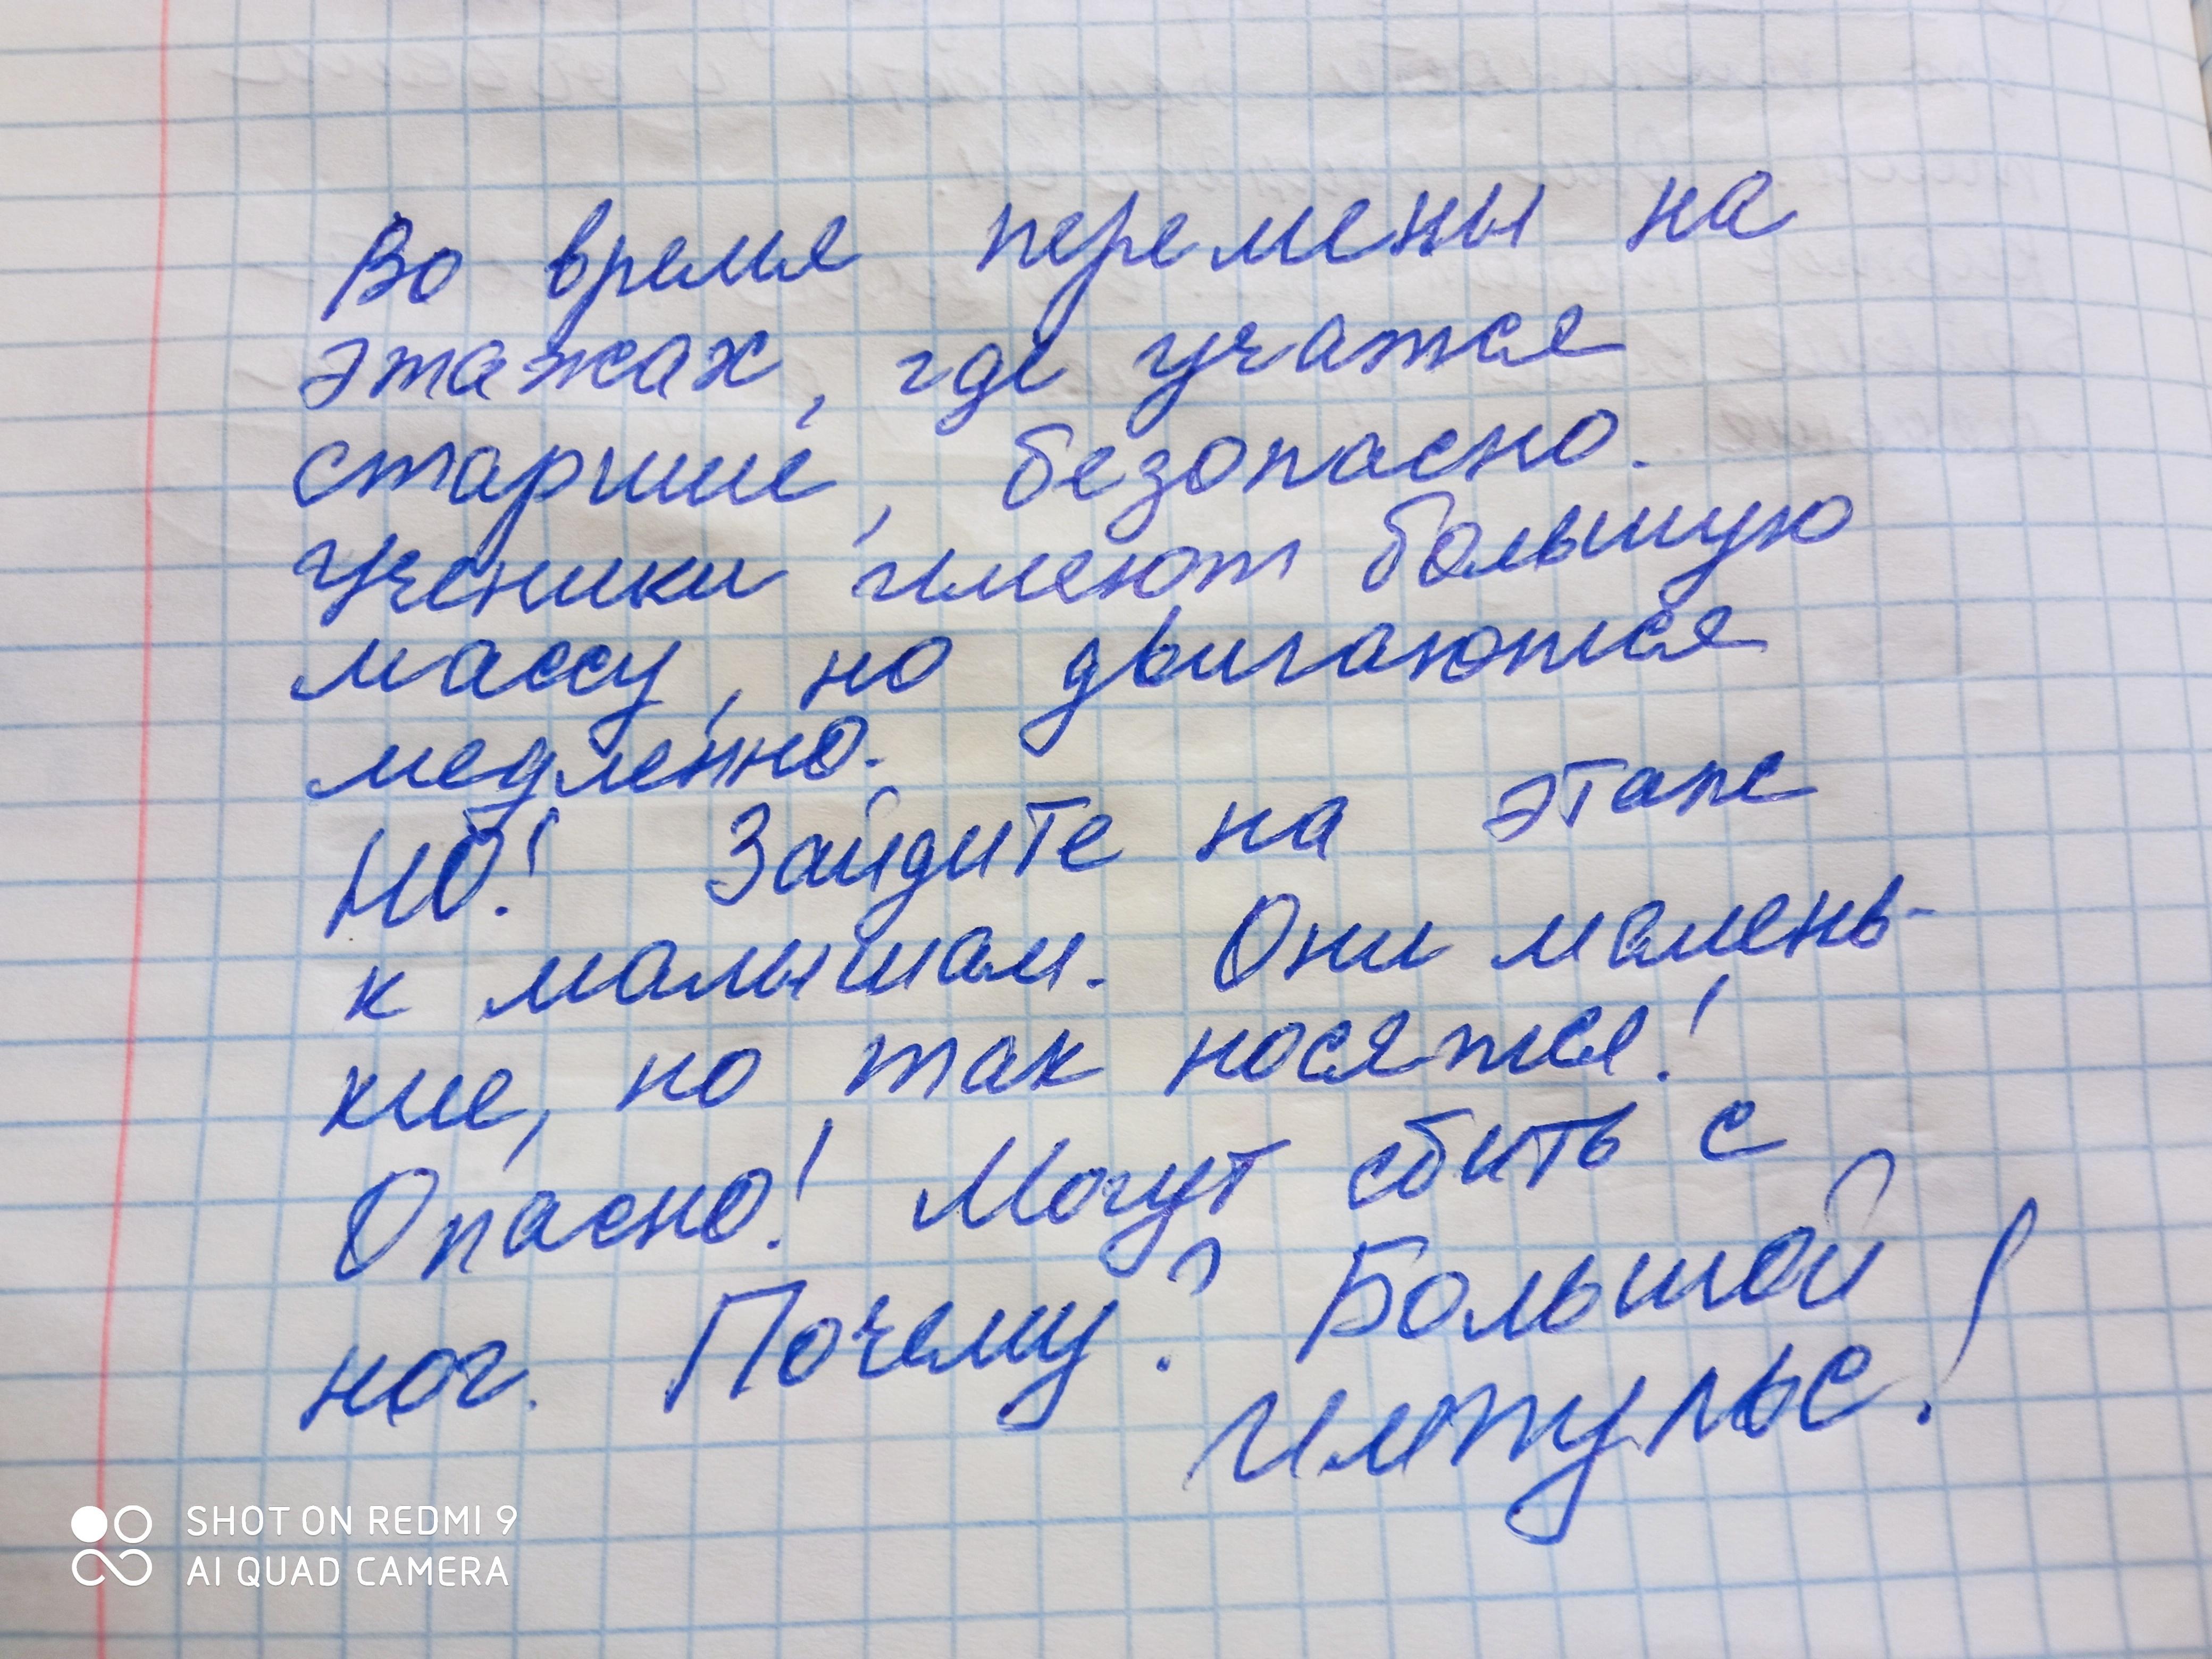 Во время перемены на
этажах, где учатся
старшие, безопасно.
Ученики имеют большую
массу, но двигаются
медленно.
НО! Зайдите на этаж
к малышам. Они малень-
кие, но так носятся!
Опасно! Могут сбить с
ног. Почему? Большой
импульс!
SHOT ON REDMI 9
AI QUAD CAMERA